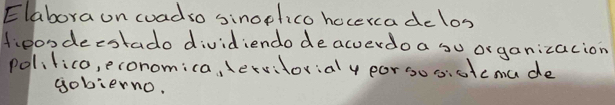 Elabora un cuadro sinoptico hacerca de los
tipos de estado dividiendo de acuerdo a su organizacion
politica, economica, territorial y por su sistema de
gobierno.